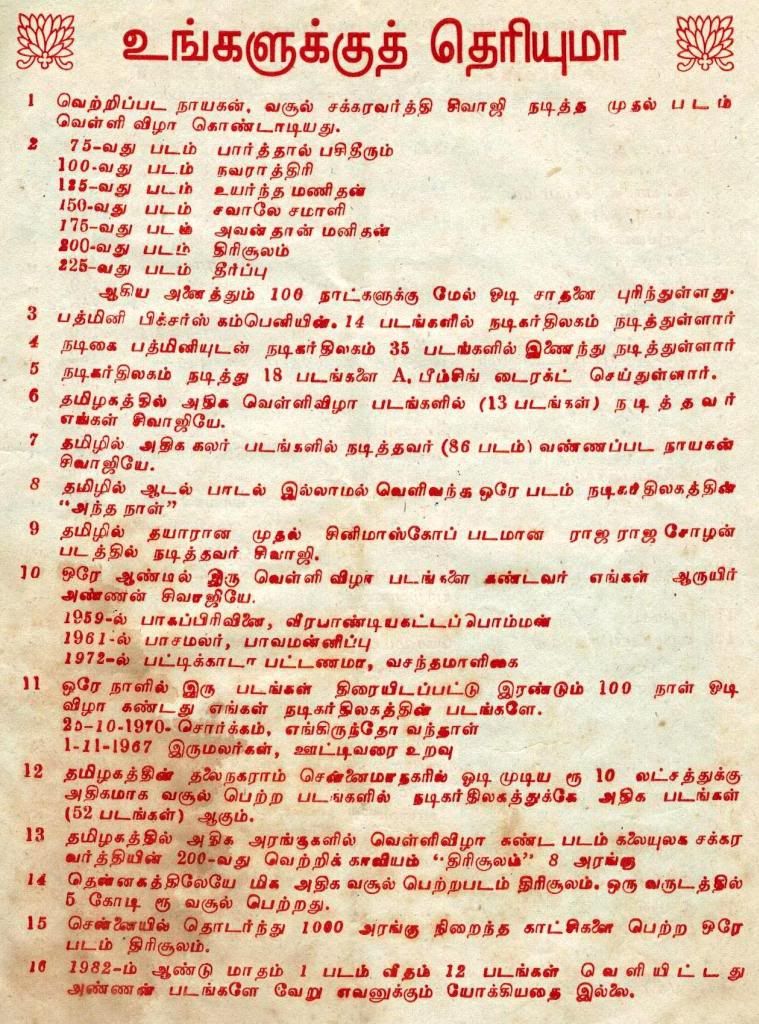 உங்களுக்குத் தெரியுமா
1 வெற்றிப்பட நாயகன், வசூல் சக்கரவர்த்தி சிவாஜி நடித்த முதல் படம்
வெள்ளி விழா கொண்டாடியது.
2 75-வது படம் பார்த்தால் பசிதீரும்
100-வது படம் நவராத்திரி
125-வது படம் உயர்ந்த மணிதன்
150-வது படம் சவாலே சமாளி
175-வது படம் அவன்தான் மனிதன்
200-வது படம் திரிசூலம்
225-வது படம் தீர்ப்பு
ஆகிய அனைத்தும் 100 நாட்களுக்கு மேல் ஓடி சாதனை புரிந்துள்ளது.
3 பத்மினி பிக்சர்ஸ் கம்பெனியின். 14 படங்களில் நடிகர்திலகம் நடித்துள்ளார்
4 நடிகை பத்மினியுடன் நடிகர்திலகம் 35 படங்களில் இணைந்து நடித்துள்ளார்
5 நடிகர்திலகம் நடித்து 18 படங்களை A. பீம்சிங் டைரக்ட் செய்துள்ளார்.
6 தமிழகத்தில் அதிக வெள்ளிவிழா படங்களில் (13 படங்கள்) நடித்தவர்
எங்கள் சிவாஜியே.
7 தமிழில் அதிக கலர் படங்களில் நடித்தவர் (86 படம்) வண்ணப்பட நாயகன்
சிவாஜியே.
8 தமிழில் ஆடல் பாடல் இல்லாமல் வெளிவந்த ஒரே படம் நடிகர் திலகத்தின்
“அந்த நாள்”
9 தமிழில் தயாரான முதல் சினிமாஸ்கோப் படமான ராஜ ராஜ சோழன்
படத்தில் நடித்தவர் சிவாஜி.
10 ஒரே ஆண்டில் இரு வெள்ளி விழா படங்களை கண்டவர் எங்கள் ஆருயிர்
அண்ணன் சிவாஜியே.
1959-ல் பாகப்பிரிவினை, வீரபாண்டியகட்டப்பொம்மன்
1961-ல் பாசமலர், பாவமன்னிப்பு
1972-ல் பட்டிக்காடா பட்டணமா, வசந்தமாளிகை
11 ஒரே நாளில் இரு படங்கள் திரையிடப்பட்டு இரண்டும் 100 நாள் ஓடி
விழா கண்டது எங்கள் நடிகர்திலகத்தின் படங்களே.
29-10-1970- சொர்க்கம், எங்கிருந்தோ வந்தாள்
1-11-1967 இருமலர்கள், ஊட்டிவரை உறவு
12 தமிழகத்தின் தலைநகராம் சென்னைமாநகரில் ஓடி முடிய ரூ 10 லட்சத்துக்கு
அதிகமாக வசூல் பெற்ற படங்களில் நடிகர்திலகத்துக்கே அதிக படங்கள்
(52 படங்கள்) ஆகும்.
13 தமிழகத்தில் அதிக அரங்குகளில் வெள்ளிவிழா கண்ட படம் கலையுலக சக்கர
வர்த்தியின் 200-வது வெற்றிக் காவியம் “திரிசூலம்” 8 அரங்கு
14 தென்னகத்திலேயே மிக அதிக வசூல் பெற்றபடம் திரிசூலம். ஒரு வருடத்தில்
5 கோடி ரூ வசூல் பெற்றது.
15 சென்னையில் தொடர்ந்து 1000 அரங்கு நிறைந்த காட்சிகளை பெற்ற ஒரே
படம் திரிசூலம்.
16 1982-ம் ஆண்டு மாதம் 1 படம் வீதம் 12 படங்கள் வெளியிட்டது
அண்ணன் படங்களே வேறு எவனுக்கும் யோக்கியதை இல்லை.